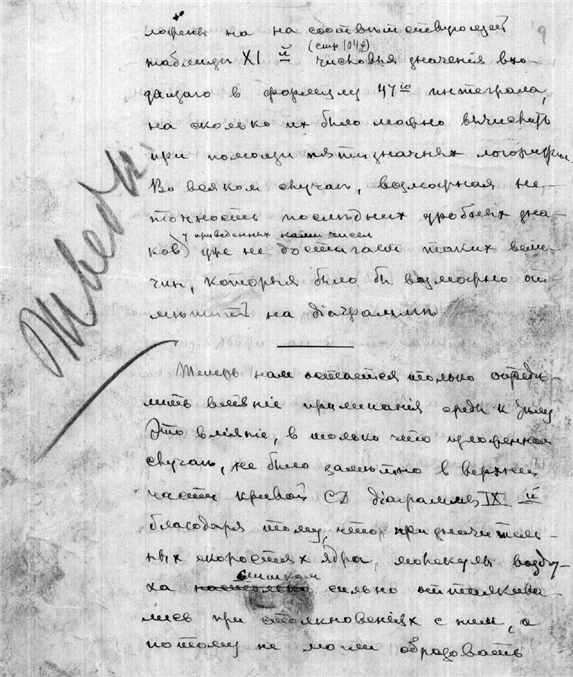 ложены на на соотвѣтствующей
(стр 104)
таблицы XI й числовыя значенія вхо-
дящаго в формулу 47го интеграла,
на сколько их было можно вычислить
при помощи пятизначных логарифм.
Во всяком случаѣ, возможная не-
точность послѣдних дробных зна-
у приведенных нами чисел
ков) уже не достигает таких вели-
чин, которыя было бы возможно от-
мѣтить на діаграммѣ.
Теперь нам остается только опредѣ-
лить вліяніе прилипанія среды к
Это вліяніе, в только что изложенном
случаѣ, не было замѣтно в верхней
части кривой CD діаграммы IX й
благодаря тому, что, при значитель-
ных скоростях ядра, молекулы возду-
слишком
ха настолько сильно отталкива-
лись при столкновеніях с ним, а
потому не могли образовать